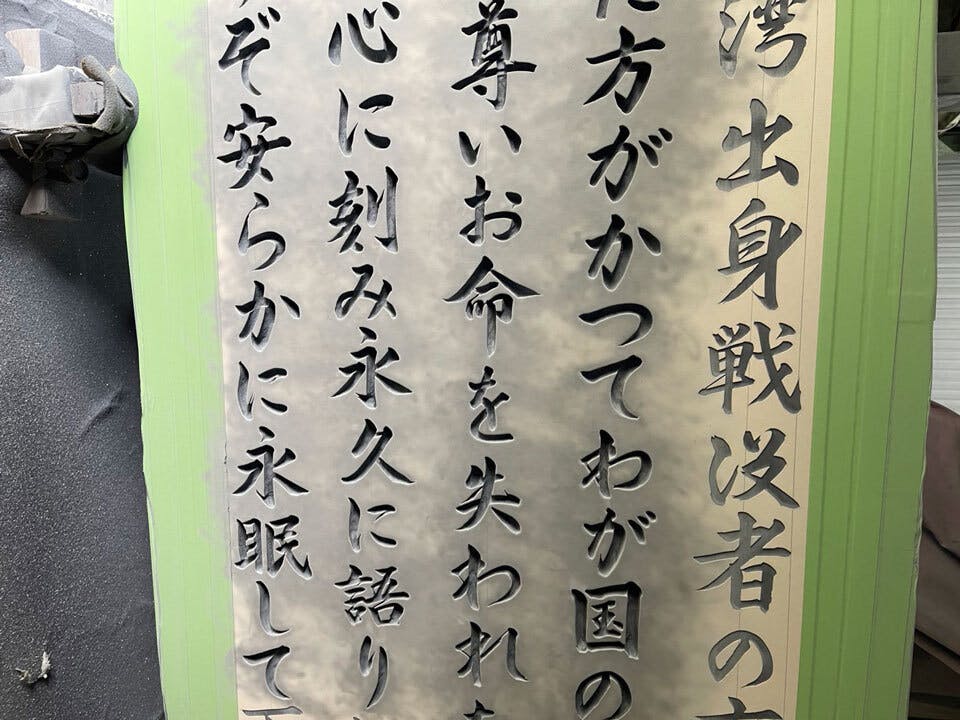 湾出身戦没者の方
た方がかつてわが国の
尊いお命を失われ
心に刻み永久に語り
ぞ安らかに永眠して下